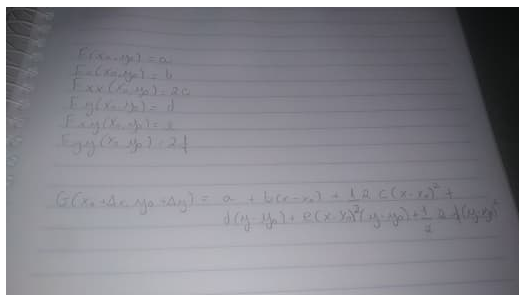 F(x₀, y₀) = a
Fx(x₀, y₀) = b
Fxx(x₀, y₀) = 2c
Fy(x₀, y₀) = d
Fxy(x₀, y₀) = e
Fyy(x₀, y₀) = 2f
G(x₀+Δx, y₀+Δy) = a + b(x-x₀) + 1/2 2 c(x-x₀)² +
d(y-y₀) + e(x-x₀)²(y-y₀) + 1/2 2 f(y-y₀)²